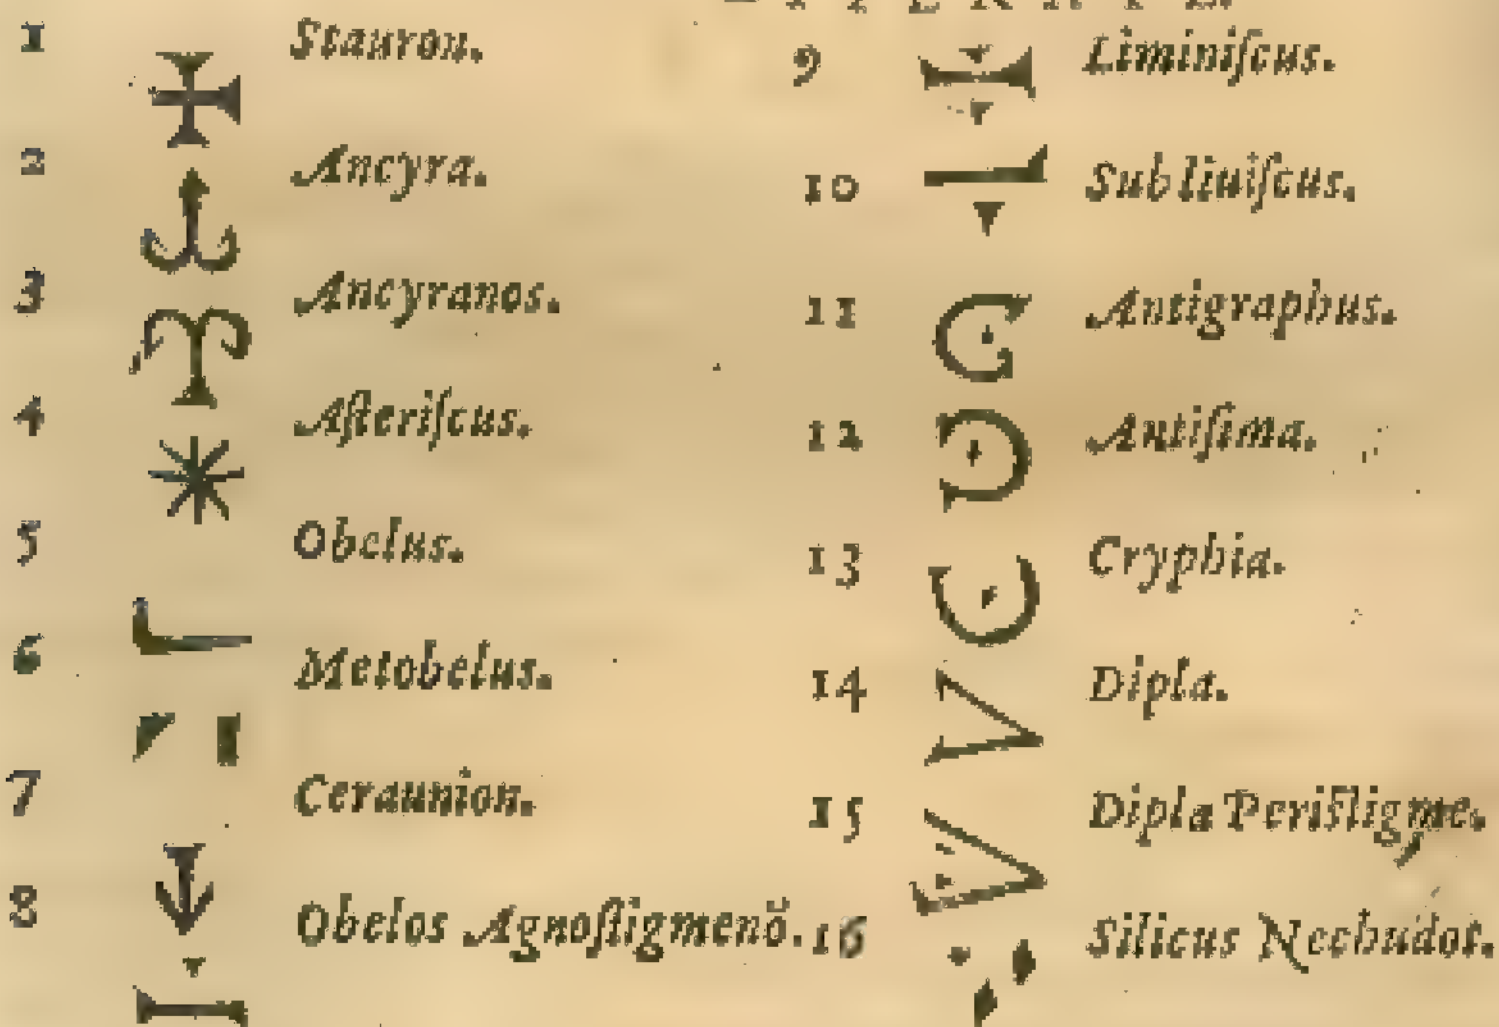 1 Stauron.
2 Ancyra.
3 Ancyranos.
4 Aſteriſcus.
5 Obelus.
6 Metobelus.
7 Ceraunion.
8 Obelos Agnoſtigmenō.
9 Liminiſcus.
10 Subliuiſcus.
11 Antigraphus.
12 Antiſima.
13 Cryphia.
14 Dipla.
15 Dipla Periſtigme.
16 Silicus